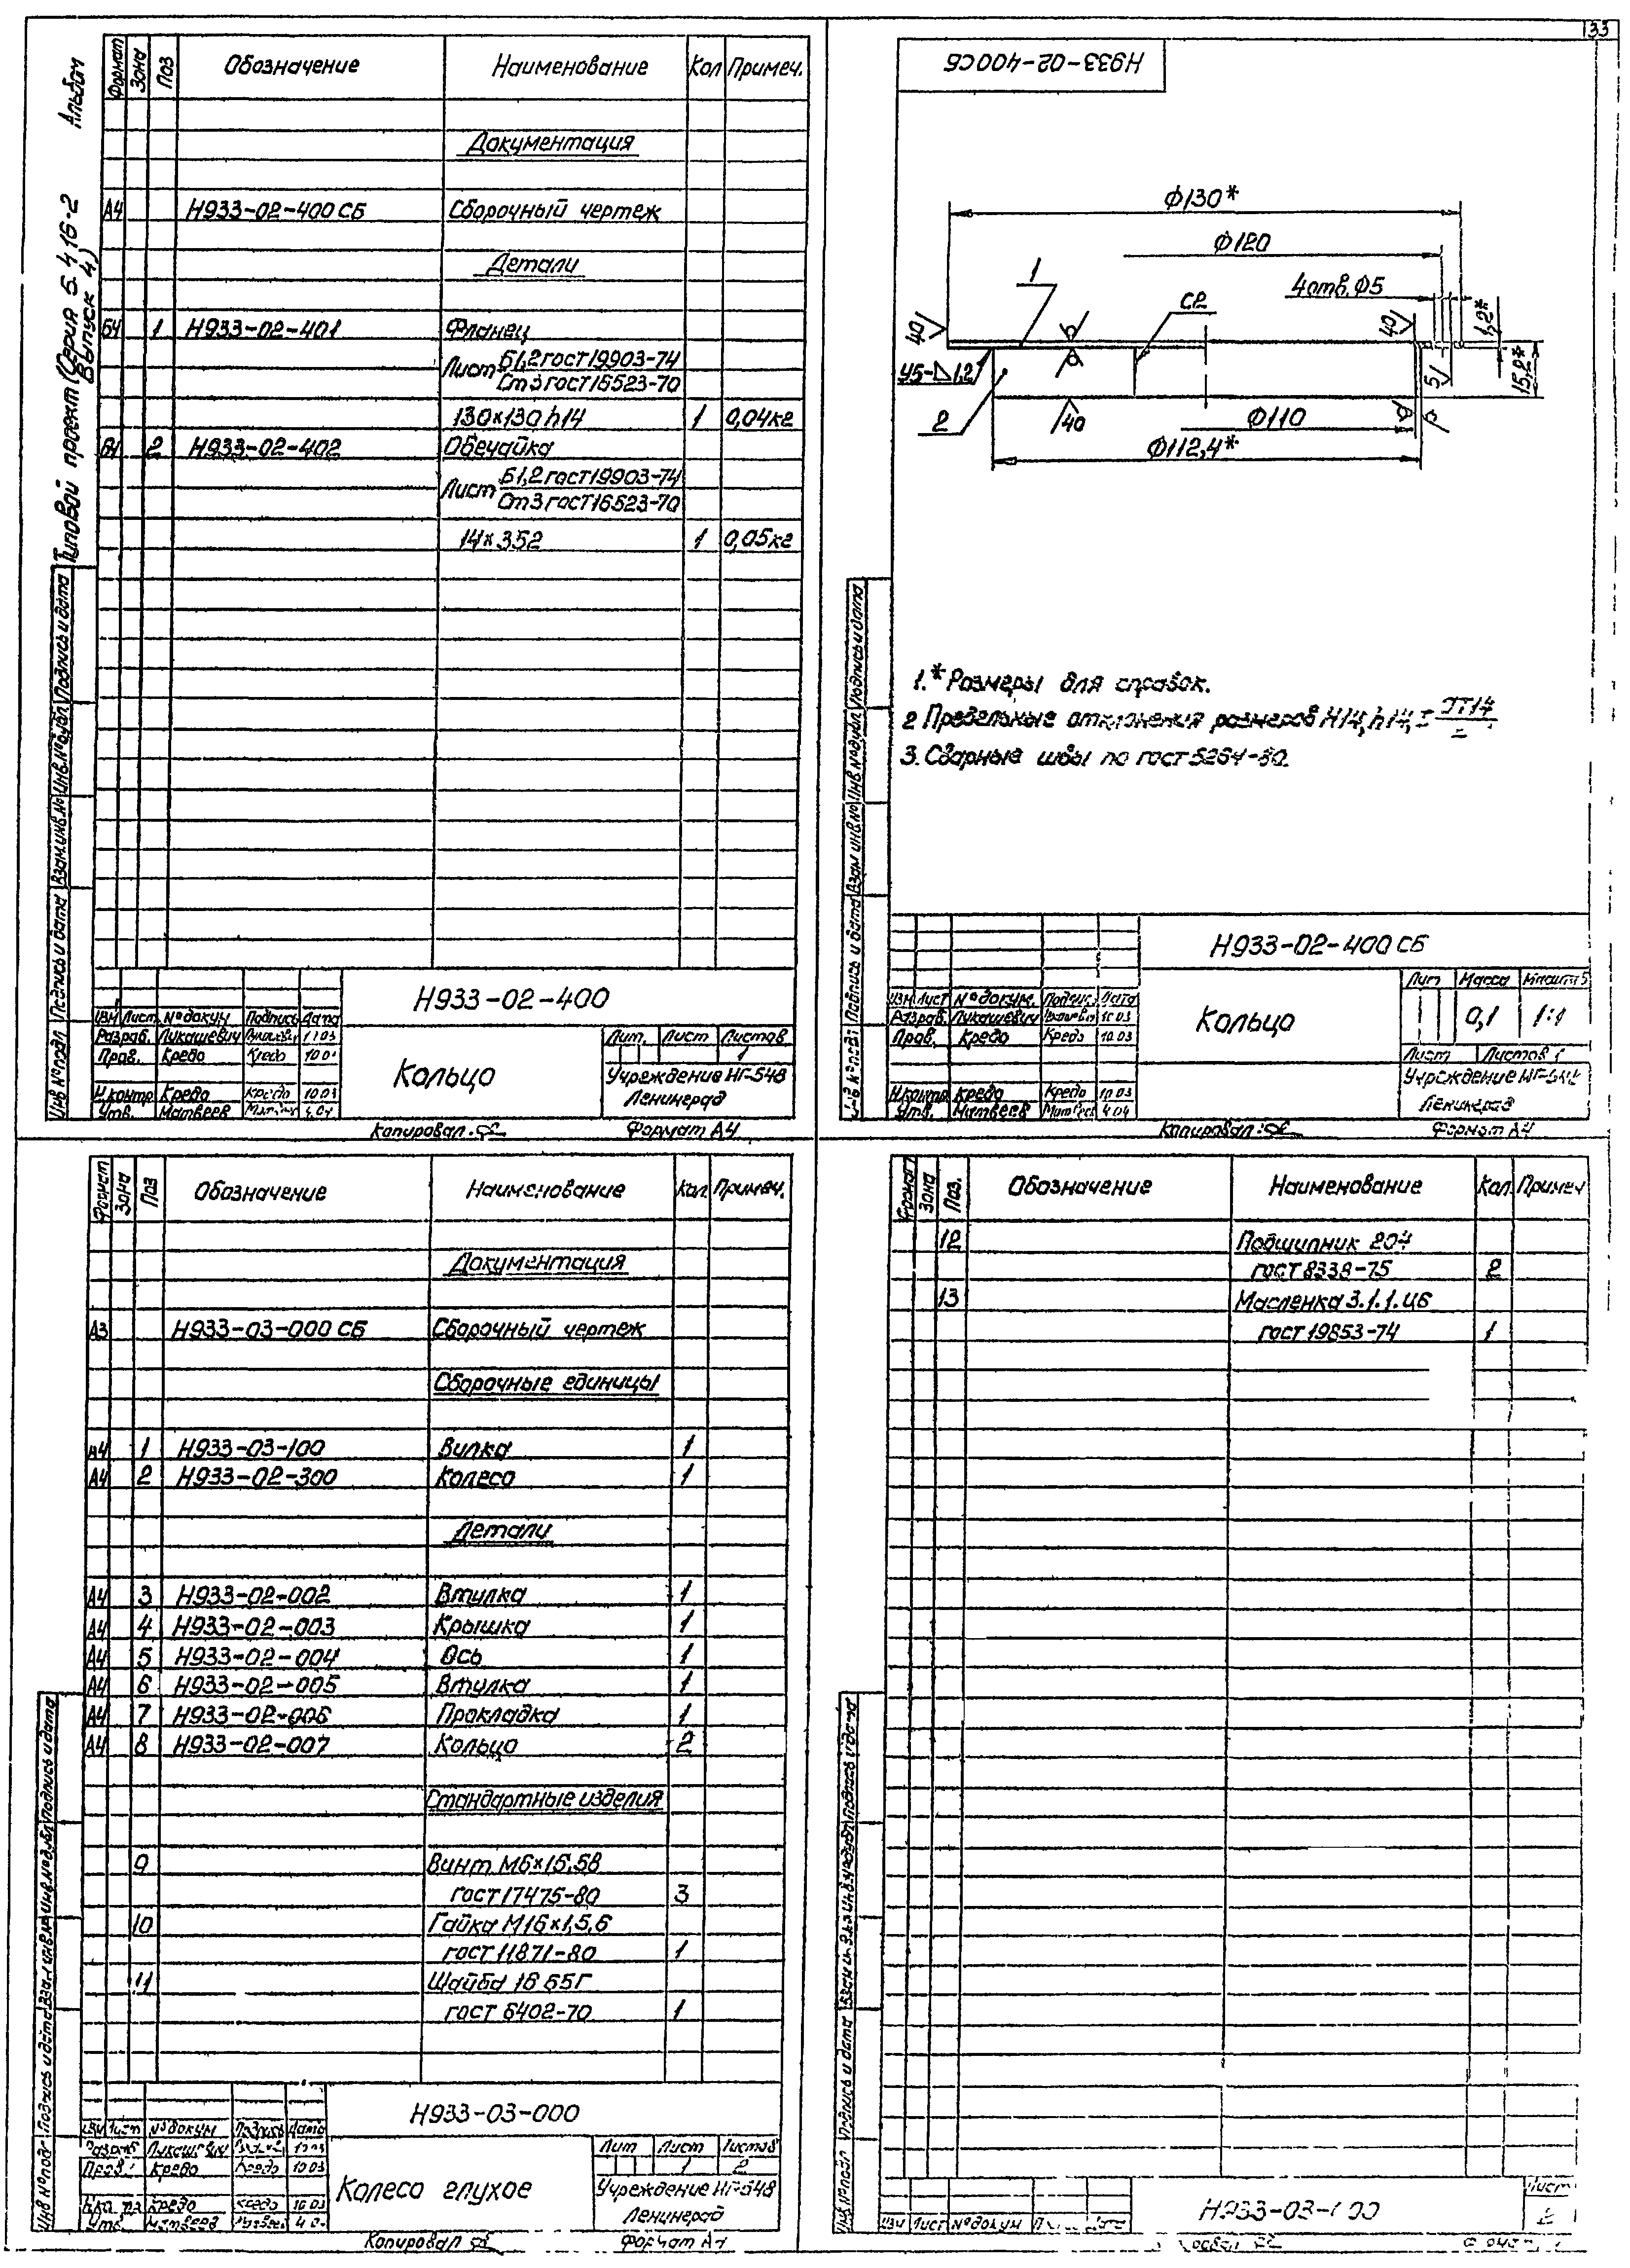 33
Альбом
Типовой проект (Серия 5.416-2
Выпуск 4)
Формат Зона Поз Обозначение Наименование Кол Примеч.
Документация
А4 Н933-02-400 СБ Сборочный чертеж
Детали
Б4 1 Н933-02-401 Фланец
Лист Б1,2 гост 19903-74
Ст3 гост 16523-70
130×130 h14 1 0,04кг
Б4 2 Н933-02-402 Обечайка
Лист Б1,2 гост 19903-74
Ст3 гост 16523-70
14×352 1 0,05кг
Инв.№подл Подпись и дата Взам.инв.№ Инв.№дубл Подпись и дата
Н933-02-400
Изм Лист №докум Подпись Дата
Разраб. Лукашевич
Пров. Кредо Кредо
Н.контр Кредо Кредо 10.03
Утв. Матвеев
Кольцо
Лит. Лист Листов
1
Учреждение НГ-548
Ленинград
Копировал: Формат А4
Н933-02-400СБ
Ф130*
Ф120
4отв.Ф5
1
С2
1,2*
15,2*
40
40
У5-⊿1,2
2
40
5
Ф110
Ф112,4*
1.* Размеры для справок.
2 Предельные отклонения размеров Н14, h14,
3. Сварные швы по гост 5264-80.
Инв №подл Подпись и дата Взам инв.№ Инв №дубл Подпись и дата
Н933-02-400 СБ
Изм Лист №докум. Подпис. Дата
Разраб. Лукашевич 10.03
Пров. Кредо Кредо 10.03
Н.контр Кредо Кредо 10.03
Утв. Матвеев Матвеев 4.04
Кольцо
Лит Масса Масштаб
0,1 1:1
Лист Листов 1
Учреждение НГ-548
Ленинград
Копировал: Формат А4
Формат Зона Поз Обозначение Наименование Кол. Примеч.
Документация
А3 Н933-03-000 СБ Сборочный чертеж
Сборочные единицы
А4 1 Н933-03-100 Вилка 1
А4 2 Н933-02-300 Колесо 1
Детали
А4 3 Н933-02-002 Втулка 1
А4 4 Н933-02-003 Крышка 1
А4 5 Н933-02-004 Ось 1
А4 6 Н933-02-005 Втулка 1
А4 7 Н933-02-006 Прокладка 1
А4 8 Н933-02-007 Кольцо 2
Стандартные изделия
9 Винт М6×15.58
гост 17475-80 3
10 Гайка М16×1,5,6
гост 11871-80 1
11 Шайба 16 65Г
гост 6402-70 1
Инв №подл Подпись и дата Взам инв.№ Инв.№дубл Подпись и дата
Н933-03-000
Изм Лист №докум Подпись Дата
Разраб Лукашевич
Пров. Кредо Кредо 10.03
Кредо Кредо 10.03
Утв. Матвеев
Колесо глухое
Лит Лист Листов
1 2
Учреждение НГ-548
Ленинград
Копировал Формат А4
Формат Зона Поз. Обозначение Наименование Кол. Примеч
12 Подшипник 204
гост 8338-75 2
13 Масленка 3.1.1.Ц6
гост 19853-74 1
Инв.№подл Подпись и дата Взам инв.№ Инв.№дубл Подпись и дата
Изм Лист №докум Дата
Н933-03-000
Лист
2